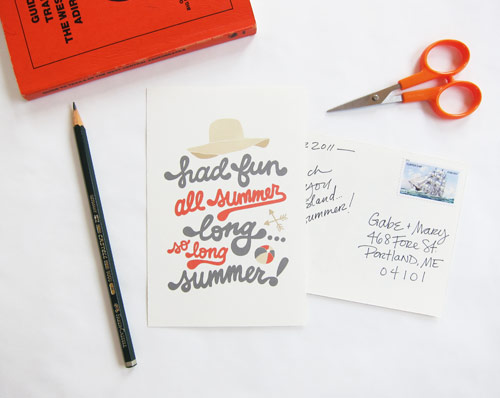 GUIDE
TRA
THE WES
ADRI
had fun
all summer
long...
so long
summer!
2011—
land...
summer!
Gabe + Mary
468 Fore St.
Portland, ME
04101
CASTELL